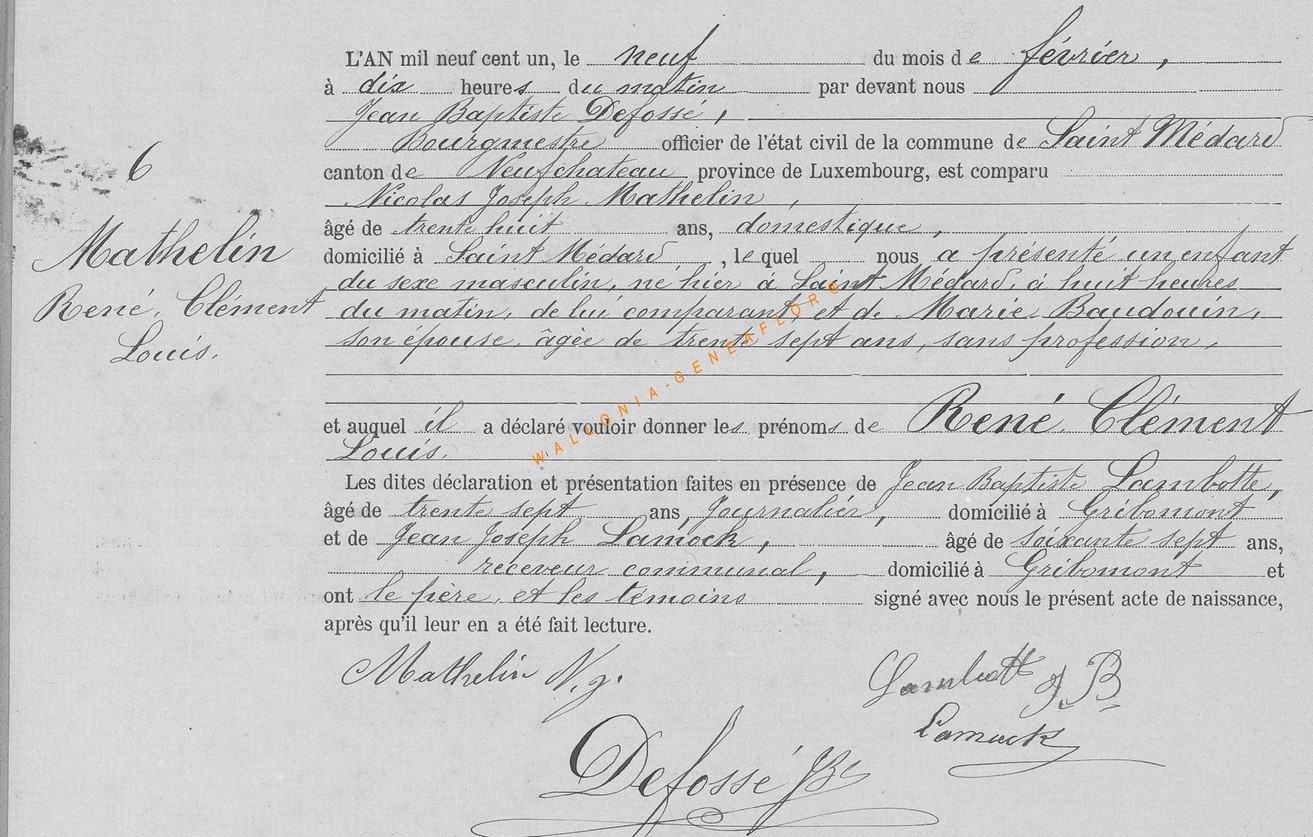 L'AN mil neuf cent un, le neuf du mois de février,
à dix heures du matin par devant nous
Jean Baptiste Defossé,
Bourgmestre officier de l'état civil de la commune de Saint Médard
canton de Neufchateau province de Luxembourg, est comparu
Nicolas Joseph Mathelin,
âgé de trente huit ans, domestique,
domicilié à Saint Médard, lequel nous a présenté un enfant
du sexe masculin, né hier à Saint Médard, à huit heures
du matin, de lui comparant, et de Marie Baudouin,
son épouse, âgée de trente sept ans, sans profession,
et auquel il a déclaré vouloir donner les prénoms de René Clément
Louis.
Les dites déclaration et présentation faites en présence de Jean Baptiste Lambotte,
âgé de trente sept ans, Journalier, domicilié à Gribomont
et de Jean Joseph Lamock, âgé de soixante sept ans,
receveur communal, domicilié à Gribomont et
ont le père, et les témoins signé avec nous le présent acte de naissance,
après qu'il leur en a été fait lecture.
6
Mathelin
René, Clément
Louis.
Mathelin N. j.
Lambott J. B
Lamock
Defossé JBte
WALLONIA-GENEAFLOR©